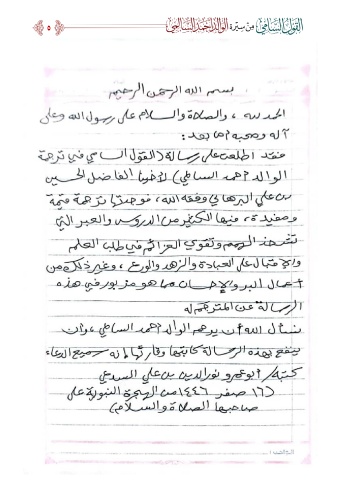 القول السامي من سيرة الوالد أحمد السالمي
٥
بسم الله الرحمن الرحيم
الحمد لله، والصلاة والسلام على رسول الله وعلى
آله وصحبه أما بعد:
فقد اطلعت على رسالة (القول السامي في ترجمة
الوالد أحمد السالمي) لأخينا الفاضل الحسين
بن علي البرهاني وفقه الله، فوجدتها ترجمة قيمة
ومفيدة، فيها الكثير من الدروس والعبر التي
تشحذ الهمم وتقوي العزائم في طلب العلم
والإقبال على العبادة والزهد والورع، وغير ذلك من
أعمال البر والإحسان مما هو مزبور في هذه
الرسالة عن المترجم له
نسأل الله أن يرحم الوالد أحمد السالمي، وأن
ينفع بهذه الرسالة كاتبها وقارئها إنه سميع الدعاء
كتبه/ أبو عمرو نور الدين بن علي السدعي
(١٦ صفر ١٤٤٦ من الهجرة النبوية على
صاحبها الصلاة والسلام)